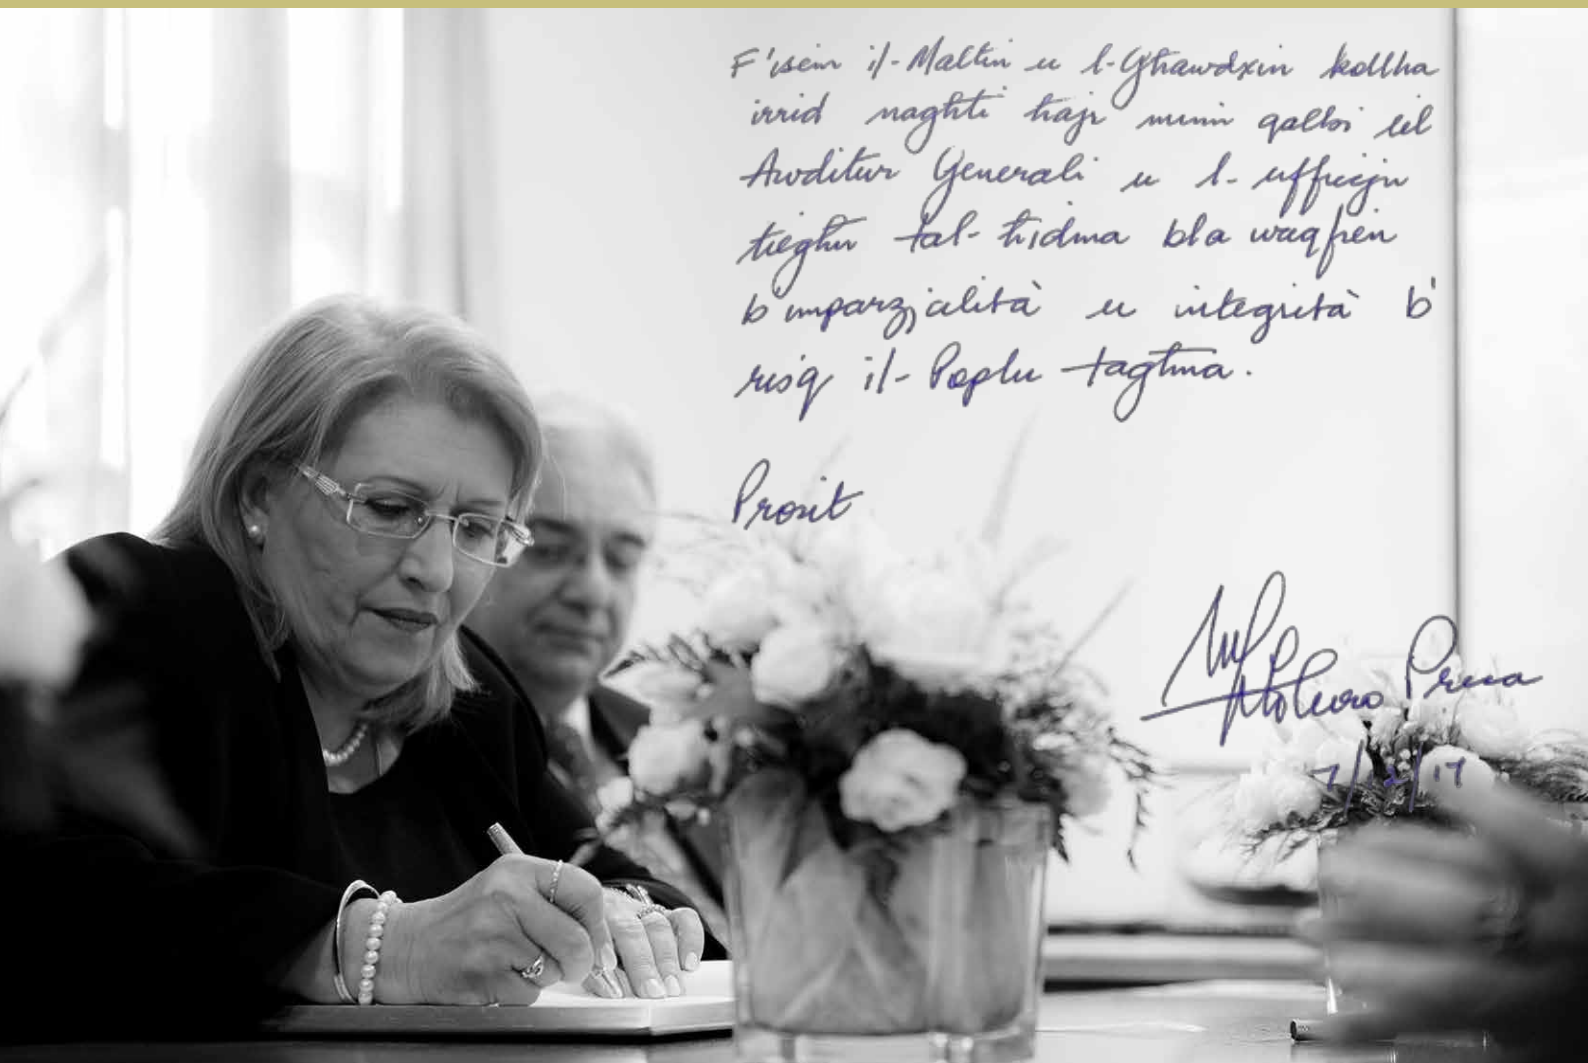 F'isem il-Maltin u l-Għawdxin kollha
irrid nagħti ħajr minn qalbi lil
Awditur Ġenerali u l-uffiċċju
tiegħu tal-ħidma bla waqfien
b'imparzjalità u integrità b'
risq il-Poplu tagħna.
Prosit
Coleiro Preca
7/12/17